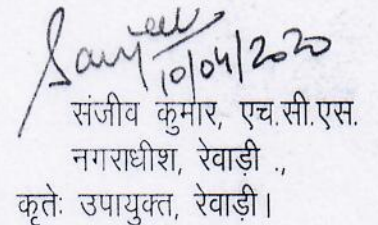 Sanjeev
10/04/2020
संजीव कुमार, एच.सी.एस.
नगराधीश, रेवाड़ी .,
कृतेः उपायुक्त, रेवाड़ी।